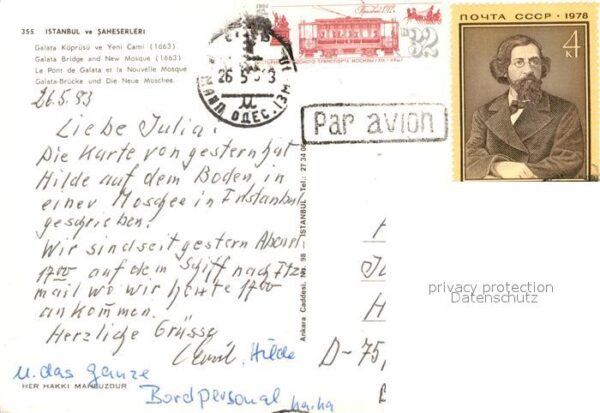 355 ISTANBUL ve ŞAHESERLERİ
Galata Köprüsü ve Yeni Cami (1663)
Galata Bridge and New Mosque (1663)
Le Pont de Galata et la Nouvelle Mosque
Galata-Brücke und Die Neue Moschee.
26.5.93
Liebe Julia!
Die Karte von gestern hat
Hilde auf dem Boden in
einer Moschee in Istanbul
geschrieben.
Wir sind seit gestern Abend
17⁰⁰ auf dem Schiff nach Itz
mail wo wir heute 17⁰⁰
ankommen.
Herzliche Grüsse
Hilde
u. das ganze
Bordpersonal ha.ha
HER HAKKI MAHFUZDUR
Ankara Caddesi, No. 98 - ISTANBUL - Tel.: 27 34 06
32
26 5 93
ОДЕС.
Par avion
ПОЧТА СССР • 1978
4 к
privacy protection
Datenschutz
D-75,